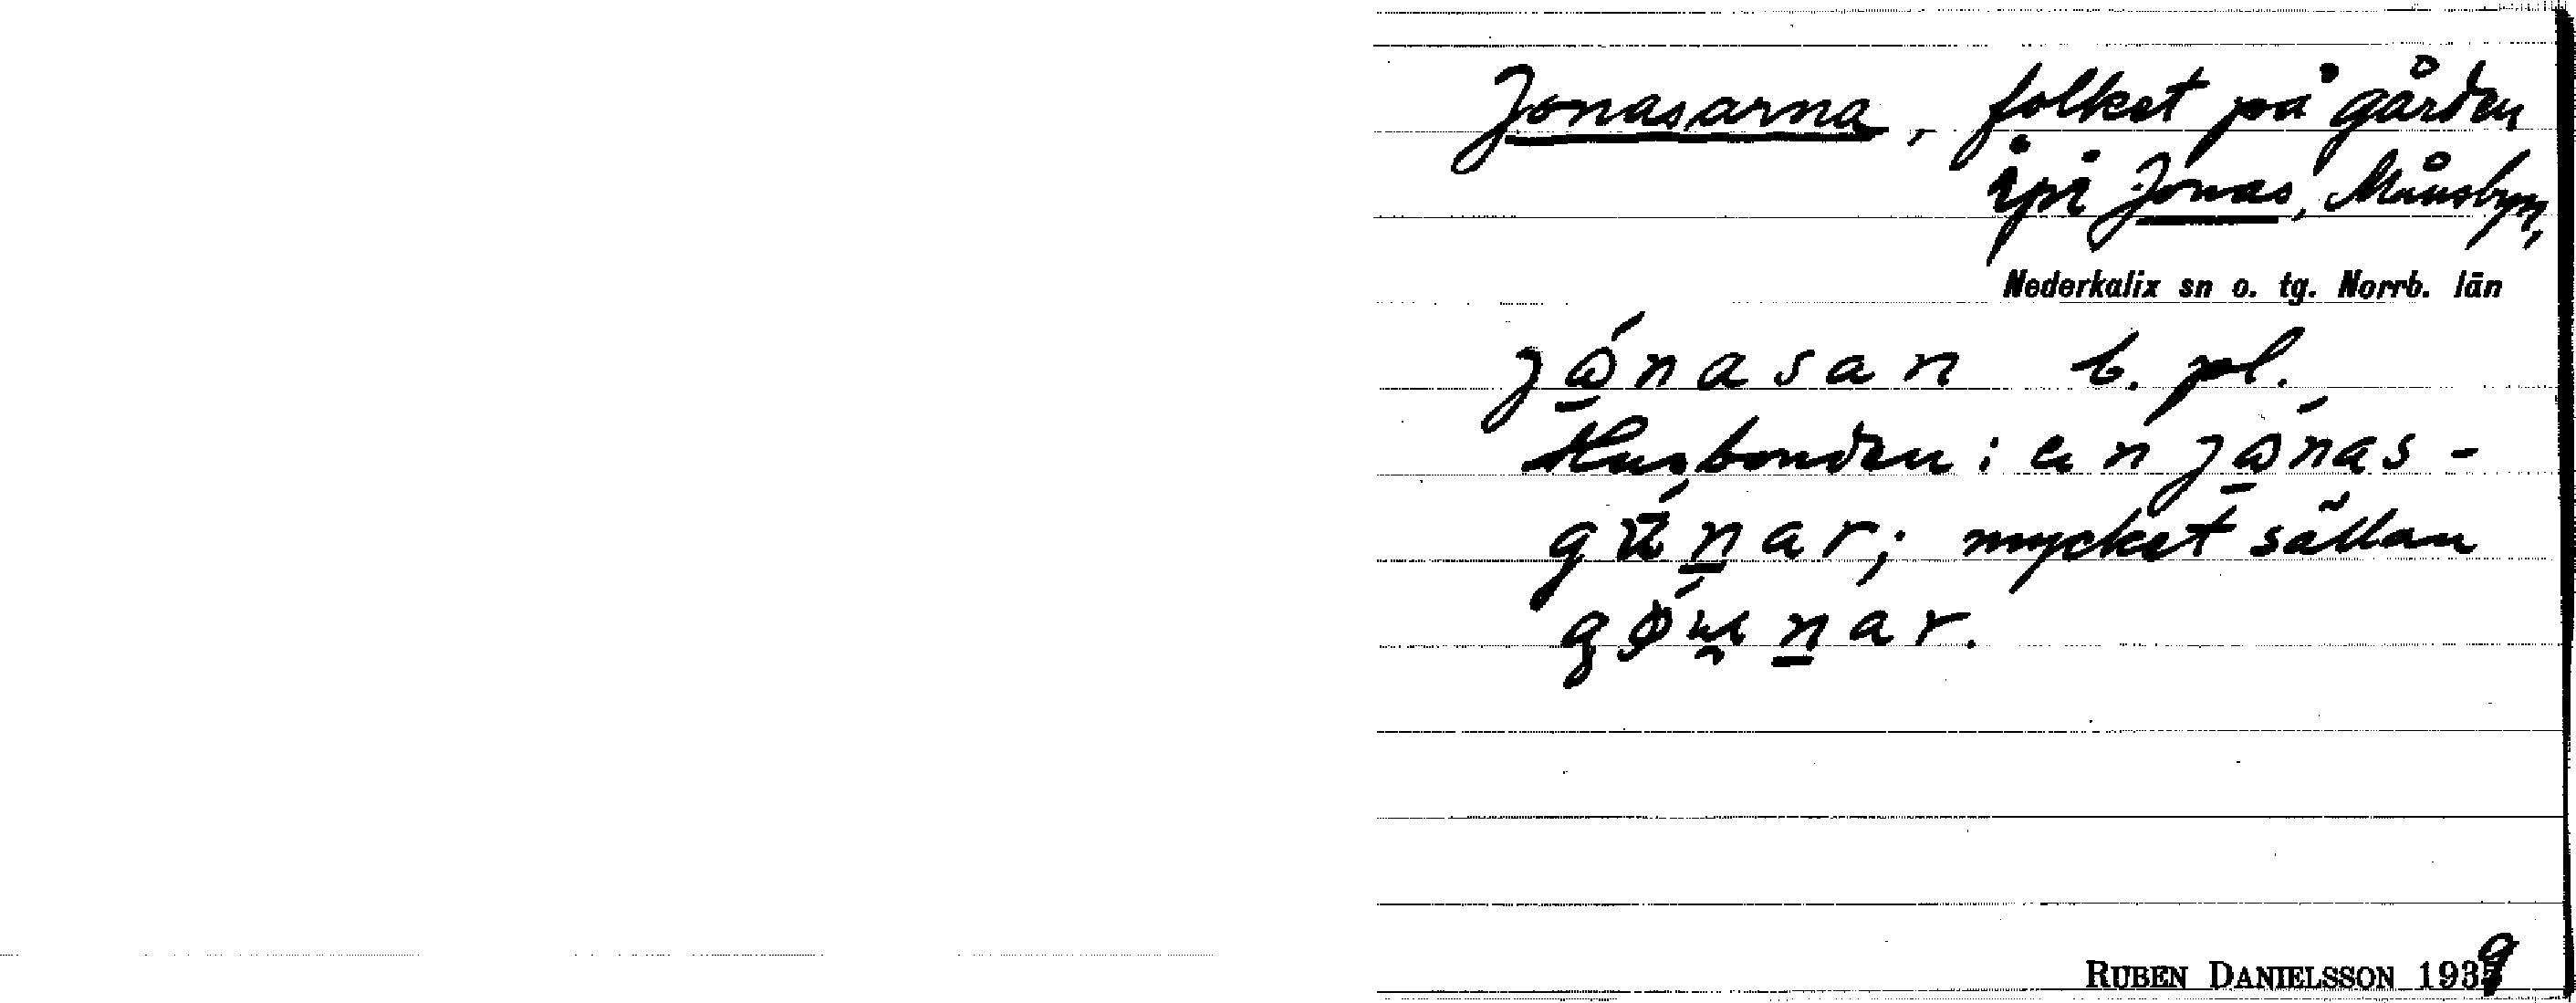 Jonasarna, folket på gården
åpå Jonas, Månsbyn,
Nederkalix sn o. tg. Norrb. län
jǫ́nasan b. pl.
Husbonden: en jǫ́nas-
gū́n̲ar; mycket sällan
gǿu̯n̲ar.
RUBEN DANIELSSON 1939